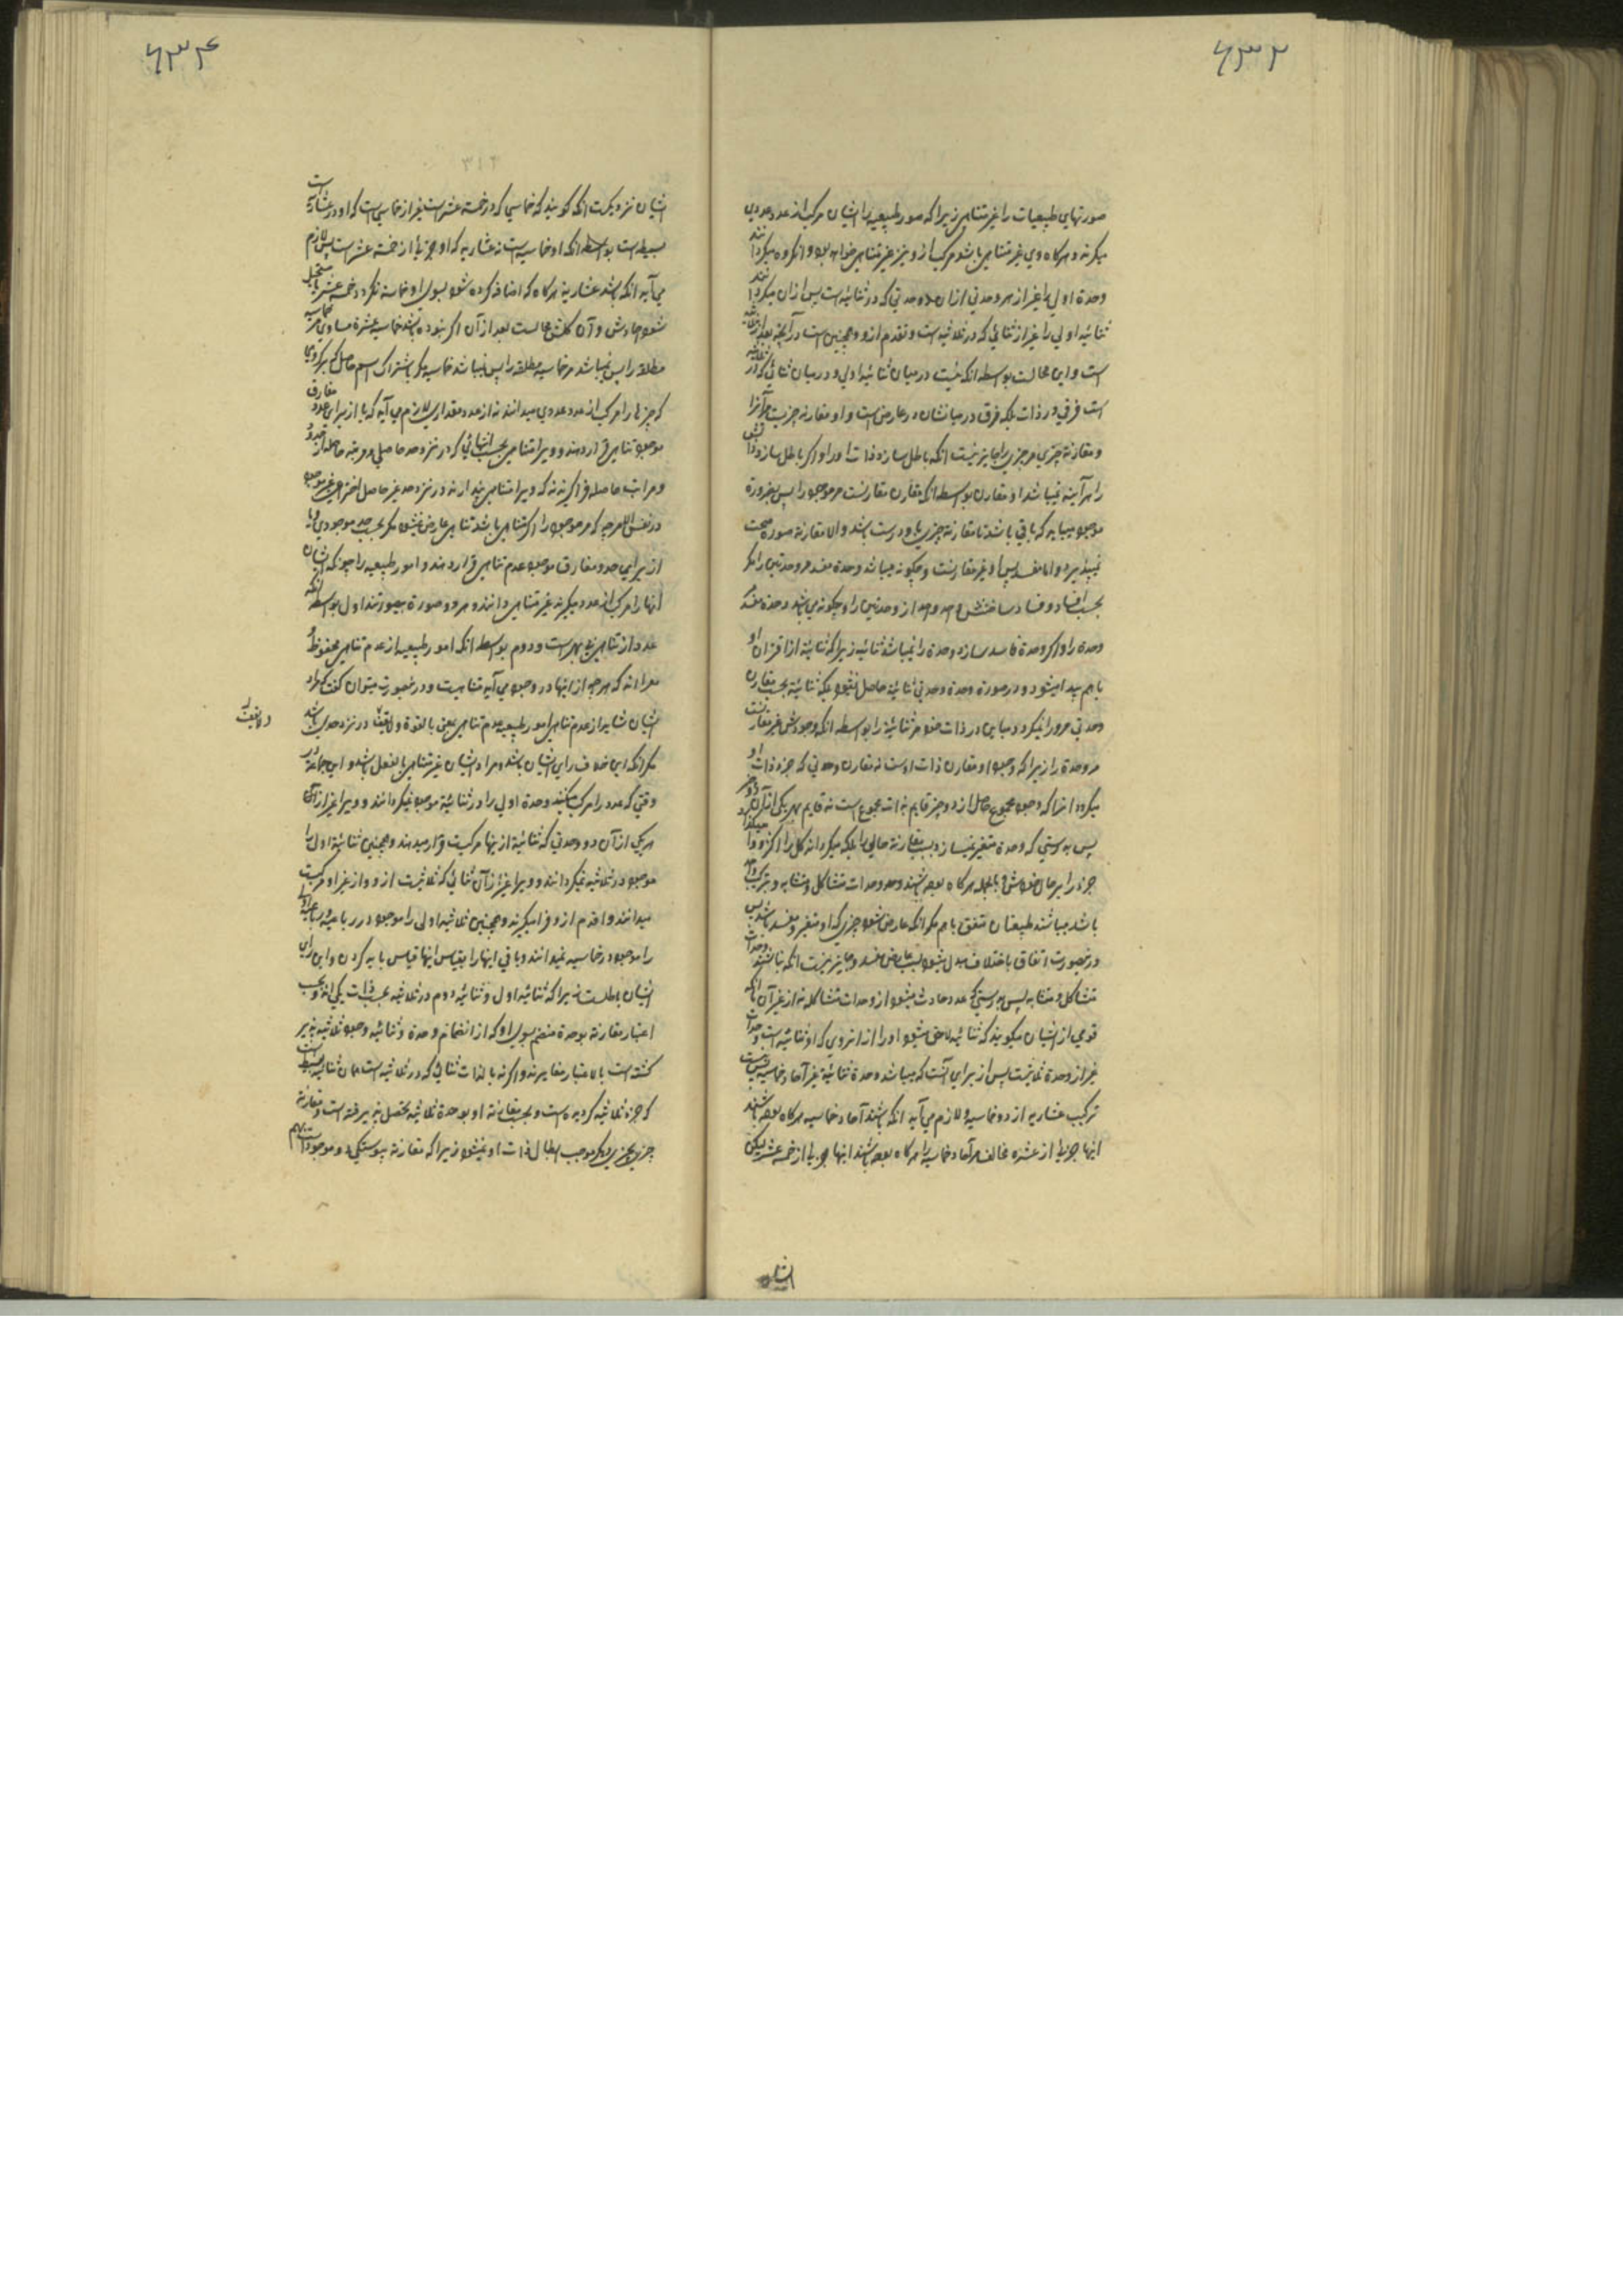 صورتهای طبیعیات را غیر متناهی زیرا که صور طبیعیه را ایشان مرکب از عدد عددی
میگیرند و هرگاه وی غیر متناهی باشد مرکب از و نیز غیر متناهی خواهد بود و انگروه میگردانند
وحدة اولی را غیر از هر وحدتی از ان دو وحدتی که در ثنائیه است پس از ان میگردانند
ثنائیه اولی را غیر از ثنائی که در ثلاثیه است و تقدم از و و همچنین است در آنچه بعد از ثلاثیه
است و این محالست بواسطه انکه نیست در میان ثنائیه اولی و در میان ثنائی که در ثلاثیه
است فرقی در ذات بلکه فرق در میانشان در عارضی است و او مقارنه چیزیست مر آنرا
و مقارنه چیزی مر چیزی را جایز نیست انکه باطل سازد ذات او را و اگر باطل سازد ذاتش
را هر آینه نمیباشد او مقارن بواسطه انکه مقارن مقارنست مر موجود را پس بضرورة
موجود میباید که باقی باشد تا مقارنه چیزی با و درست باشد و الا مقارنه صورة صحت
نمیپذیرد و اما مفسد پس او غیر مقارنست و چگونه میباشد وحدة مفسد مر وحدتین را مگر
بحسب افساد و فساد ساختنش هر واحد از وحدتین را و چگونه می باشد وحدة مفسد
وحدة را و اگر وحدة فاسد سازد وحدة را نمیباشد ثنائیه زیرا که ثنائیه از اقتران او
با هم پیدا میشود و در صورة وحدة وحدتی ثنائیه حاصل نمیشود بلکه ثنائیة بحسب مقارن
وحدتی مرو را نمیگردد مباین در ذات خود مر ثنائیه را بواسطه انکه وجودش غیر مقارنست
مر وحدة را زیرا که وجود او مقارن ذات اوست نه مقارن وحدتی که جزو ذات او
میگردد انرا که وجود مجموع حاصل از دو چیز قایم بذات مجموع است نه قایم بهر یکی از آن دو چیز
پس بدرستی که وحدة متغیر نمیسازد بسبب مقارنة حالی را بلکه میگرداند کل را اکثر و
جزء را بر حال خودش و بالجمله هرگاه بوده باشند وحدات متشاکل و متشابه و ترکیب واحد
باشد میباشند طبیعتان متفق با هم مگر انکه عارض شود چیزی که او متغیر و مفسد باشد پس
درینصورت اتفاق باختلاف مبدل میشود بسبب عارض مفسد و جایز نیست انکه نباشند وحدات
متشاکل و متشابه پس بدرستی که عدد حادث میشود از وحدات متشاکله نه از غیر آن با انکه
قومی از ایشان میگویند که ثنائیه لاحق میشود او را از انروی که او ثنائیه است وحدة
غیر از وحدة ثلاثیت پس از برای آنست که میباشد وحدة ثنائیة غیر آحاد خماسیه پس نیست
ترکیب عشاریه از دو خماسیه و لازم می آید انکه باشند آحاد خماسیه هرگاه بوده باشند
اینها جزوی از عشره مخالف مر آحاد خماسیه را هرگاه بوده باشند اینها جزوی از خمسة عشر لیکن
ایشان نزدیکست انکه گویند که خماسی که در خمسة عشر است غیر از خماسی است که او در عشاریه است
بسیط است بواسطه انکه او خماسیه است نه عشاریه که او جزوی از خمسة عشر است پس لازم
می آید انکه باشد عشاریه هرگاه که اضافه کرده شود بسوی او خماسیه نگردد خمسة عشر یا مستحیل
شود احادش و آن کلش محالست بعد از آن اگر نبوده باشد خماسیه عشرة مساوی مر خماسیه
مطلقه را پس نمیباشد مر خماسیه مطلقه را پس نمیباشد خماسیه مگر باشتراک اسم
که چیزها را مرکب از عدد عددی میدانند نه از عدد مقداری لازم می آید که یا از برای عدد مفارق
موجود تناهی قرار دهند و ویرا متناهی بحسب انتهائی که در نزد حد حاصلی و مرتبه حاصله از حدود
و مراتب حاصله فرا گیرند نه که ویرا متناهی پندارند در نزد حد غیر حاصل
در نفس الامر چه که مر موجود را اگر متناهی باشد تناهی عارض نمیشود مگر بحسب حد موجودی و یا
از برای عدد مفارق موجود عدم تناهی قرار دهند و امور طبیعیه را چونکه ایشان
آنها را مرکب از عدد میگیرند غیر متناهی دانند و هر دو صورة بیصورتند اول بواسطه انکه
عدد از تناهی بی بهره است و دوم بواسطه انکه امور طبیعیه از عدم تناهی محفوظ و
معرا اند که هر چه از انها در وجود می آید متناهیست و درینصورت میتوان گفت که مراد
ایشان شاید از عدم تناهی امور طبیعیه عدم تناهی بمعنی بالقوة و لایقف در نزد حدی باشد
مگر انکه این خلاف رای ایشان باشد و مراد ایشان غیر متناهی بالفعل باشد و این جماعة در
وقتی که عدد را مرکب میکنند وحدة اولی را در ثنائیة موجود نمیگردانند و ویرا غیر از آن
هر یکی از آن دو وحدتی که ثنائیة از ینها مرکبست قرار میدهند و همچنین ثنائیة اولی را
موجود در ثلاثیه نمیگردانند و ویرا غیر از آن ثنائی که ثلاثیست از و و از غیر او مرکبست
میدانند و اقدم از و فرا میگیرند و همچنین ثلاثیه اولی را موجود در رباعیه و رباعیه اولی
را موجود در خماسیه نمیدانند و باقی اینها را بقیاس اینها قیاس باید کردن و این رای
ایشان باطلست زیرا که ثنائیه اول و ثنائیه دوم در ثلاثیه بحسب ذات یکی اند و بحسب
اعتبار مقارنه بوحدة منضم بسوی او که از انضمام وحدة و ثنائیه وجود ثلاثیه پذیر
گشته است بالاعتبار مغایرند و اگر نه بالذات ثنائی که در ثلاثیه است همان ثنائیه بسیط است
که جزء ثلاثیه گردیده است و بحسب مقارنه او بوحدة ثلاثیه تحصل پذیرفته است و مقارنه
چیزی بچیزی دیگر موجب ابطال ذات او نمیشود زیرا که مقارنه پیوستگی دو موجود است بهم
ایشان